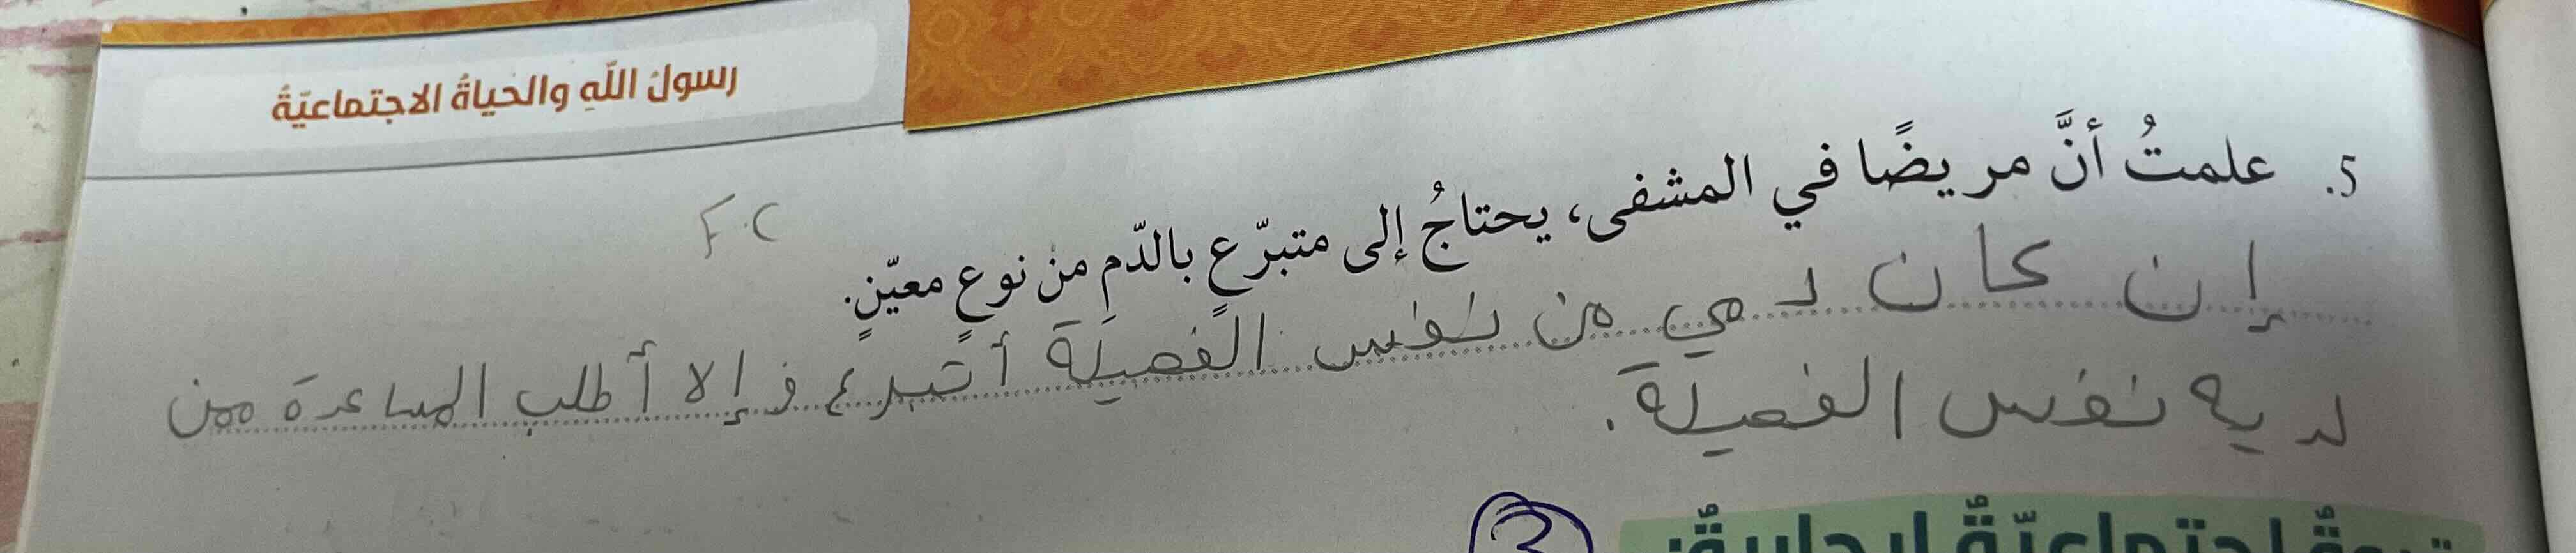 رسولُ اللّهِ والحياةُ الاجتماعيّةُ
5. علمتُ أنَّ مريضًا في المشفى، يحتاجُ إلى متبرّعٍ بالدّمِ منْ نوعٍ معيّنٍ.
F.C
إن كان دمي من نفس الفصيلة أتبرع و إلا أطلب المساعدة ممن
لديه نفس الفصيلة.
3
اجتماعيّةٌ إيجابيةٌ: